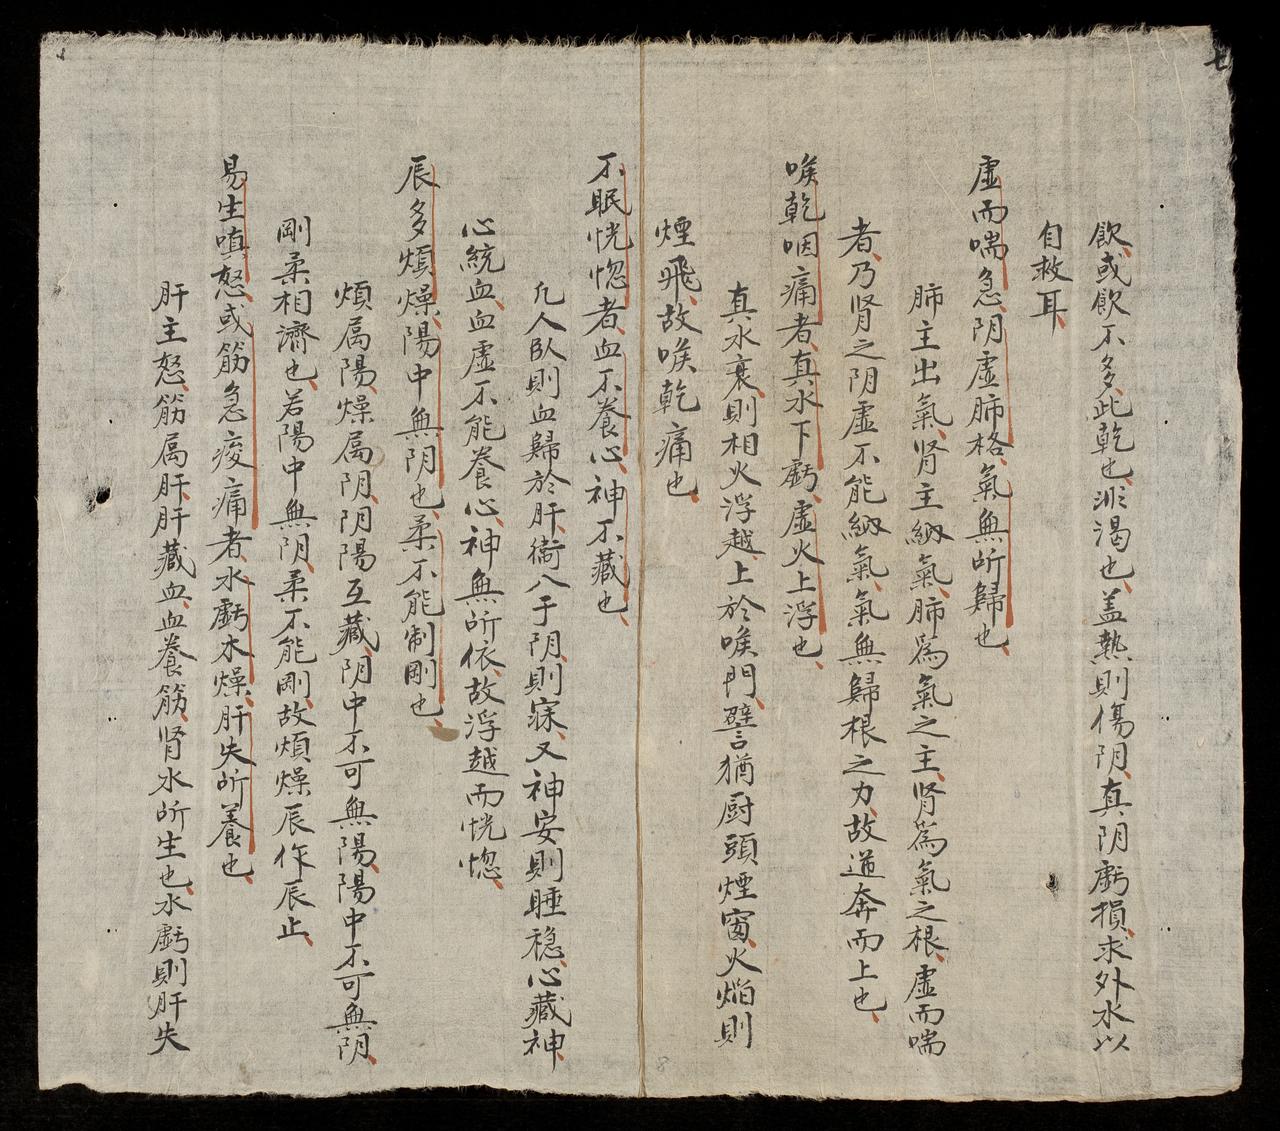 七
飲或飲不多此乾也非渴也盖熱則傷阴真阴虧損求外水以
自救耳
虛而喘急阴虛肺格氣無所歸也
肺主出氣肾主納氣肺為氣之主肾為氣之根虛而喘
者乃肾之阴虛不能納氣氣無歸根之力故道奔而上也
喉乾咽痛者真水下虧虛火上浮也
真水衰則相火浮越上於喉門譬猶厨頭煙窗火焰則
煙飛故喉乾痛也
不眠恍惚者血不養心神不藏也
凡人臥則血歸於肝衛入于阴則寐又神安則睡稳心藏神
心統血血虛不能養心神無所依故浮越而恍惚
辰多煩燥陽中無阴也柔不能制剛也
煩属陽燥属阴阴陽互藏阴中不可無陽陽中不可無阴
剛柔相濟也若陽中無阴柔不能剛故煩燥辰作辰止
易生嗔怒或筋急痠痛者水虧木燥肝失所養也
肝主怒筋属肝肝藏血血養筋肾水所生也水虧則肝失
8